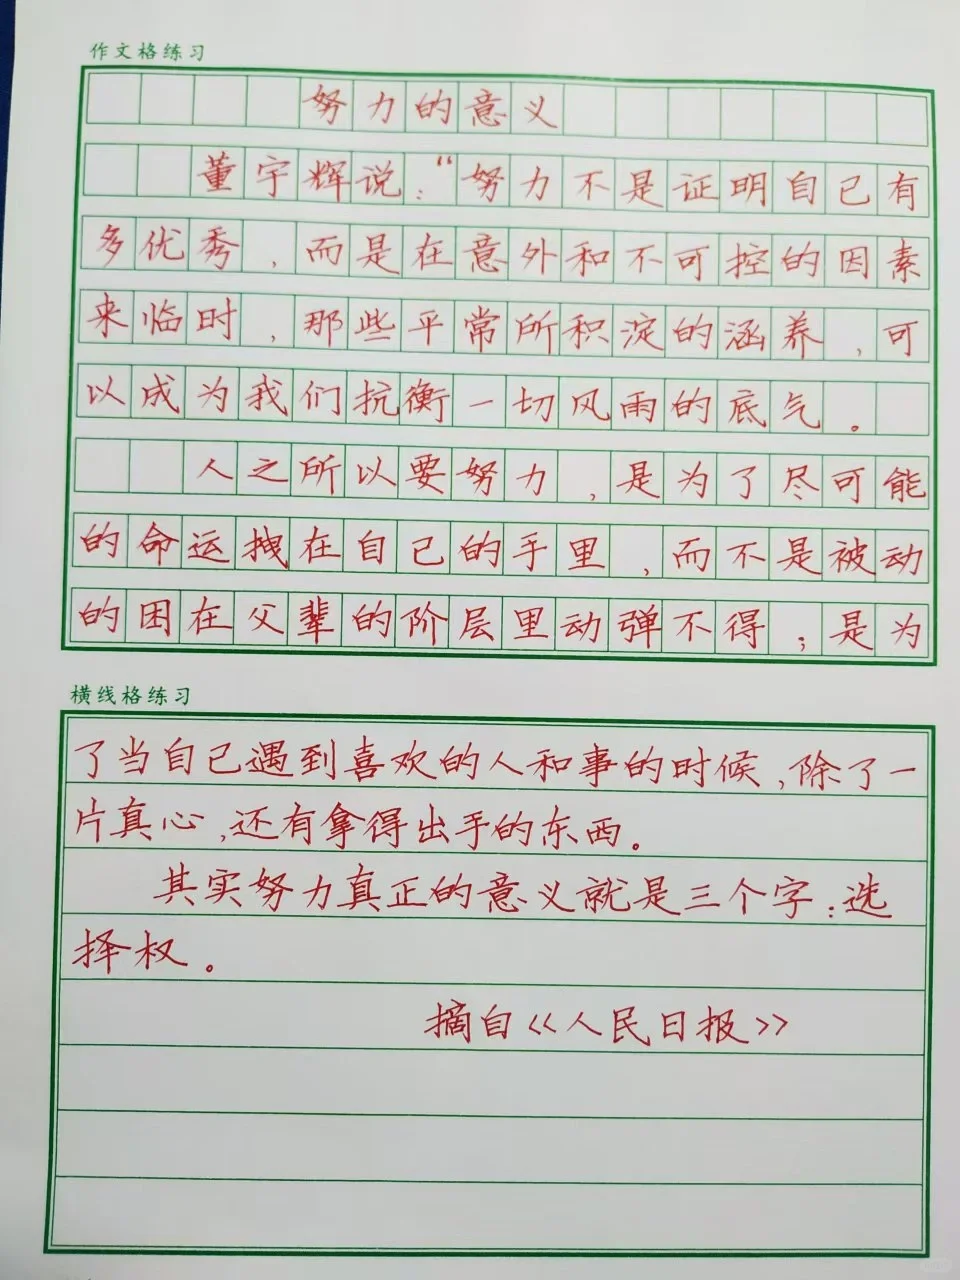 作文格练习
努力的意义
董宇辉说："努力不是证明自己有
多优秀，而是在意外和不可控的因素
来临时，那些平常所积淀的涵养，可
以成为我们抗衡一切风雨的底气。
人之所以要努力，是为了尽可能
的命运拽在自己的手里，而不是被动
的困在父辈的阶层里动弹不得；是为
横线格练习
了当自己遇到喜欢的人和事的时候，除了一
片真心，还有拿得出手的东西。
其实努力真正的意义就是三个字：选
择权。
摘自《人民日报》